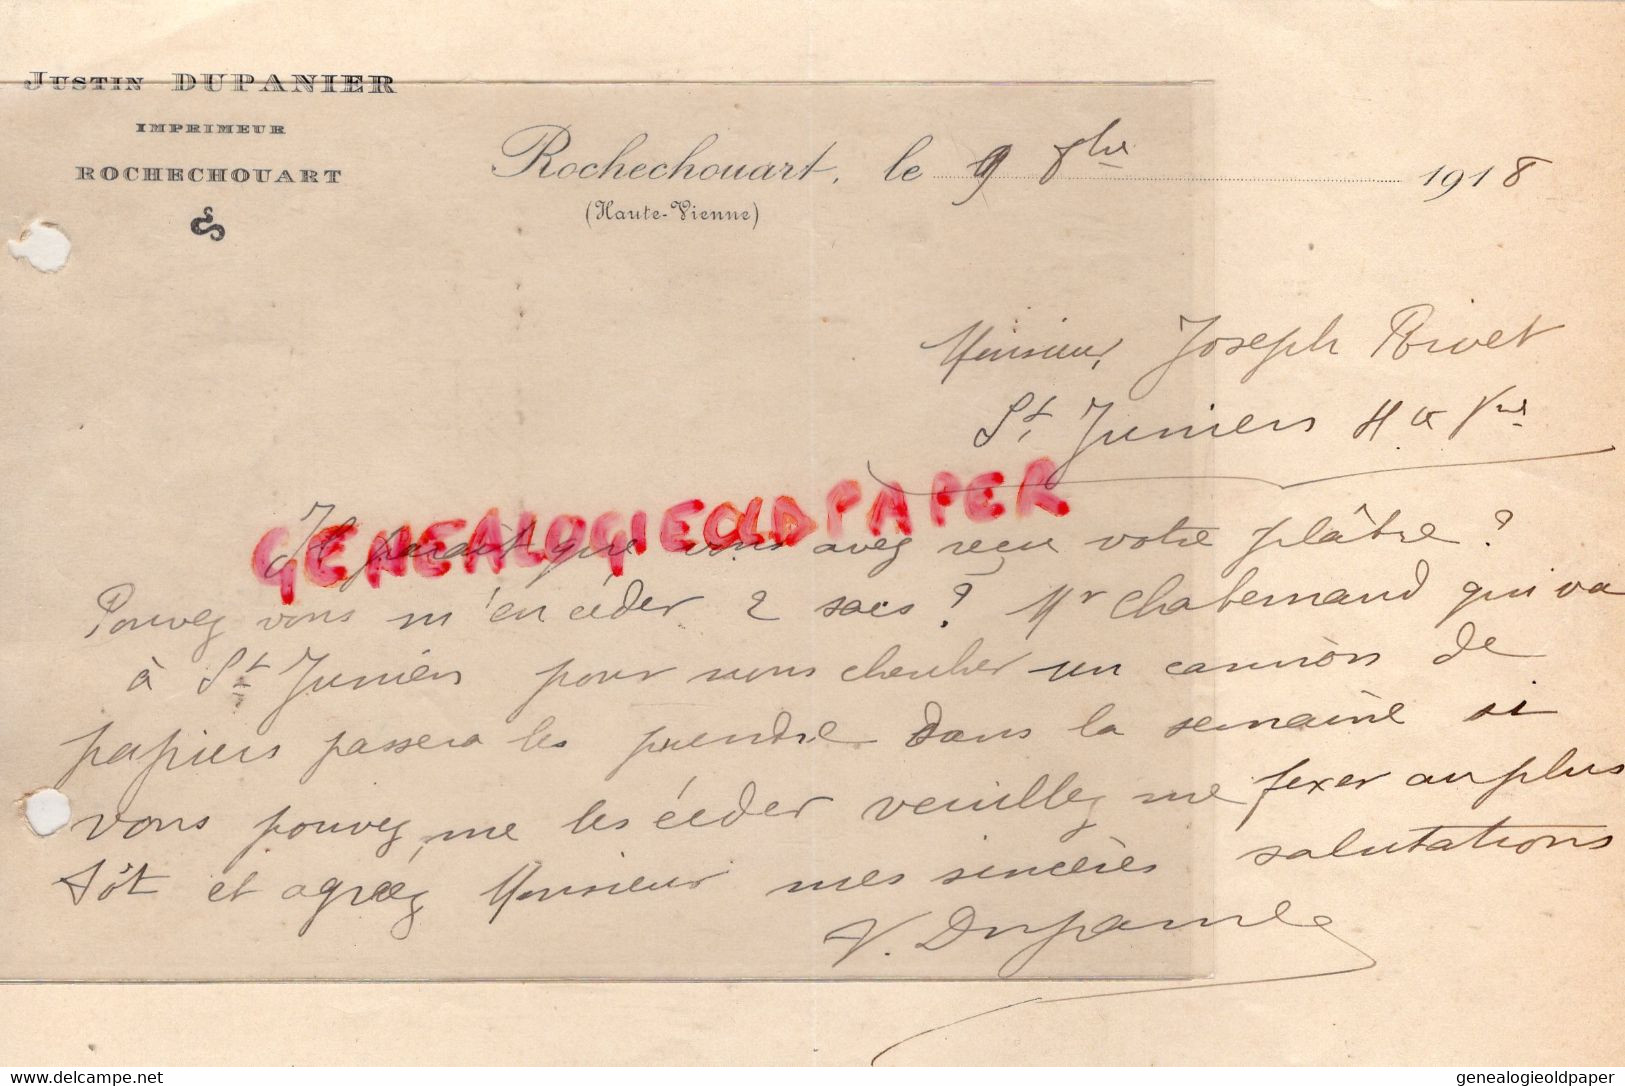 JUSTIN DUPANIER
IMPRIMEUR
ROCHECHOUART
Rochechouart, le 9 8bre 1918
(Haute-Vienne)
Monsieur Joseph Rivet
St Junien Hte Vne
GENEALOGIEOLDPAPER
Il parait que vous avez reçu votre plâtre ?
Pouvez vous m'en céder 2 sacs ? Mr Chabernaud qui va
à St Junien pour nous chercher un camion de
papiers passera les prendre dans la semaine si
vous pouvez me les céder veuillez me fixer au plus
tôt et agréez Monsieur mes sincères salutations
V. Dupanier
delcampe.net
genealogieoldpaper